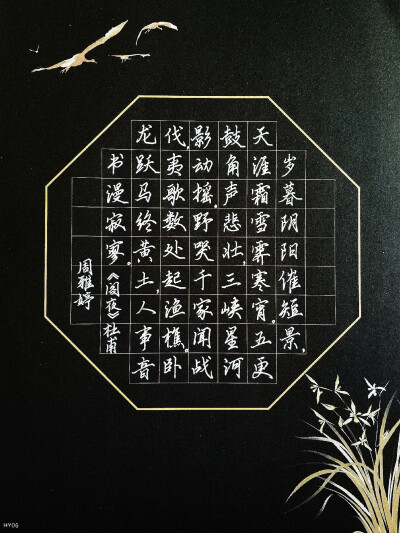 岁暮阴阳催短景,
天涯霜雪霁寒宵。五更
鼓角声悲壮,三峡星河
影动摇。野哭千家闻战
伐,夷歌数处起渔樵。卧
龙跃马终黄土,人事音
书漫寂寥。《阁夜》杜甫
周雅婷
HY06